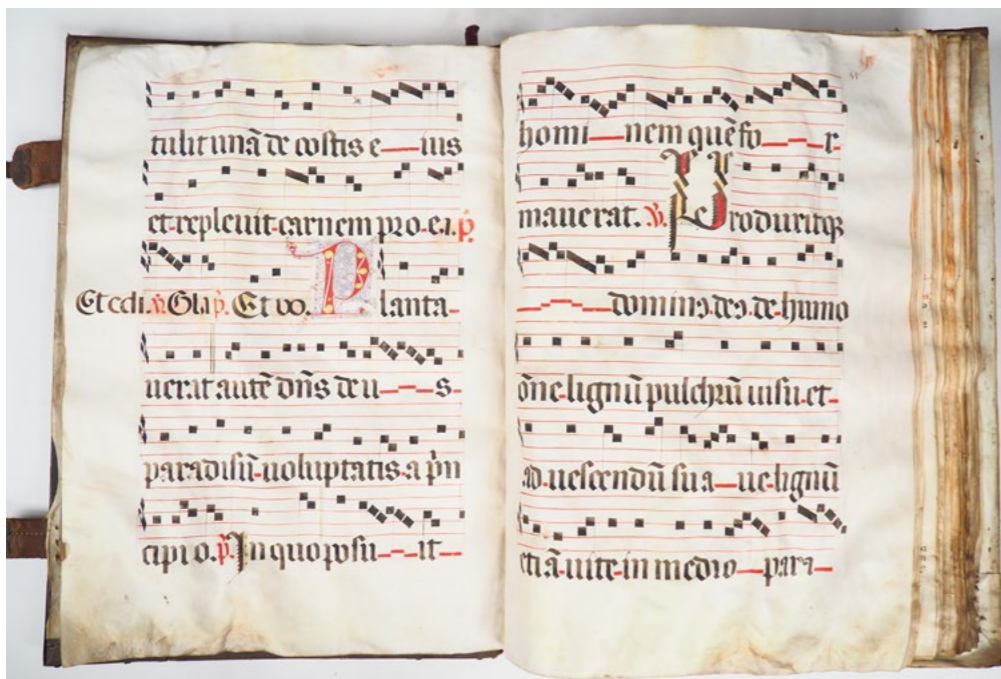 tulit unā de costis e ius
et replevit carnem pro ea. p̄.
Et edi. v̄. Gla p̄. Et vo. Planta
uerat autē dn̄s deu s
paradisū uoluptatis a p̄n
cipio. p̄. In quo posu it
homi nem quē fo r
mauerat. v̄. Produxitqꝫ
dominꝰ deꝰ de humo
ōne lignū pulchrū uisu et
ad uescendū sua ue lignū
etiā uite in medio para